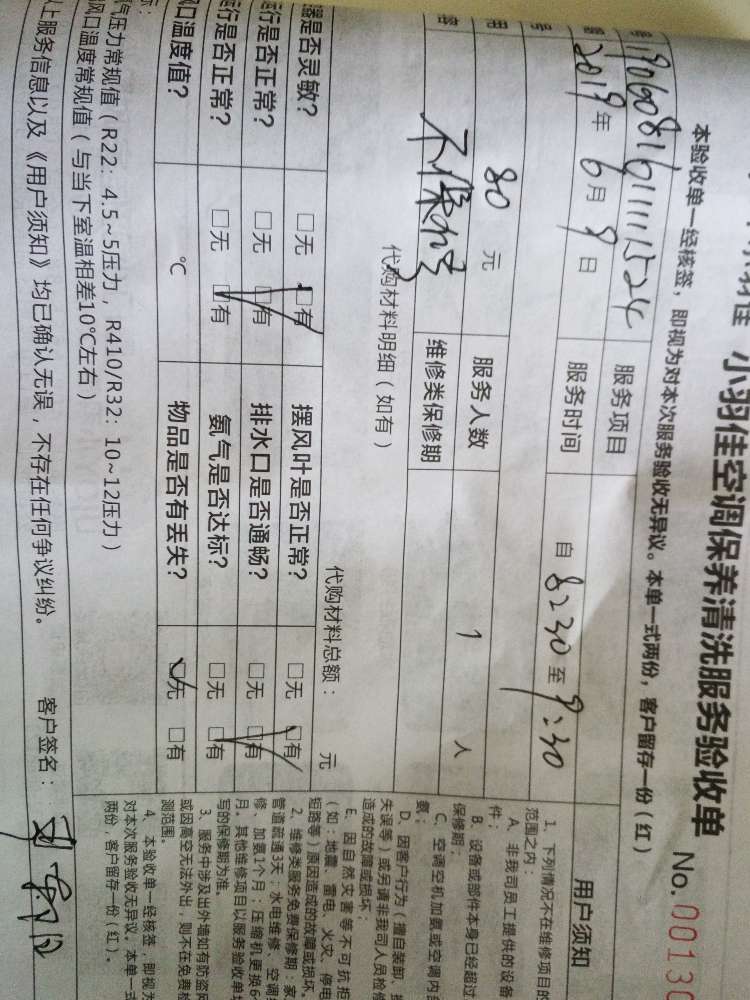 小羽佳空调保养清洗服务验收单
No. 00130
本验收单一经核签，即视为对本次服务验收无异议。本单一式两份，客户留存一份（红）
服务项目
2019年6月9日
服务时间
自 8:30 至 9:30
80 元
服务人数
1 人
维修类保修期
代购材料明细（如有）
代购材料总额： 元
器是否灵敏？ □无 □有 摆风叶是否正常？ □无 □有
行是否正常？ □无 □有 排水口是否通畅？ □无 □有
行是否正常？ □无 □有 氨气是否达标？ □无 □有
风口温度值？ ℃ 物品是否有丢失？ □无 □有
气压力常规值（R22：4.5~5压力，R410/R32：10~12压力）
风口温度常规值（与当下室温相差10℃左右）
以上服务信息以及《用户须知》均已确认无误，不存在任何争议纠纷。
客户签名：
用户须知
1、下列情况不在维修项目的
范围之内：
A、非我司员工提供的设备
件；
B、设备或部件本身已经超过
保修期；
C、空调空机加氨或空调内含
氨；
D、因客户行为（擅自装卸、操
失误等）或另请非我司人员检修
造成的故障或损坏；
E、因自然灾害等不可抗拒
（如：地震、雷电、火灾、停电
短路等）原因造成的故障或损坏。
2、维修类服务免费保修期：家
管道疏通3天；水电维修、空调维
修、加氨1个月；压缩机更换6
月。其他维修项目以服务验收单填
写的保修期为准。
3、服务中涉及出外墙如有防盗网
或因高空无法外出，则不在免费检
测范围。
4、本验收单一经核签，即视为
对本次服务验收无异议。本单一式
两份，客户留存一份（红）。